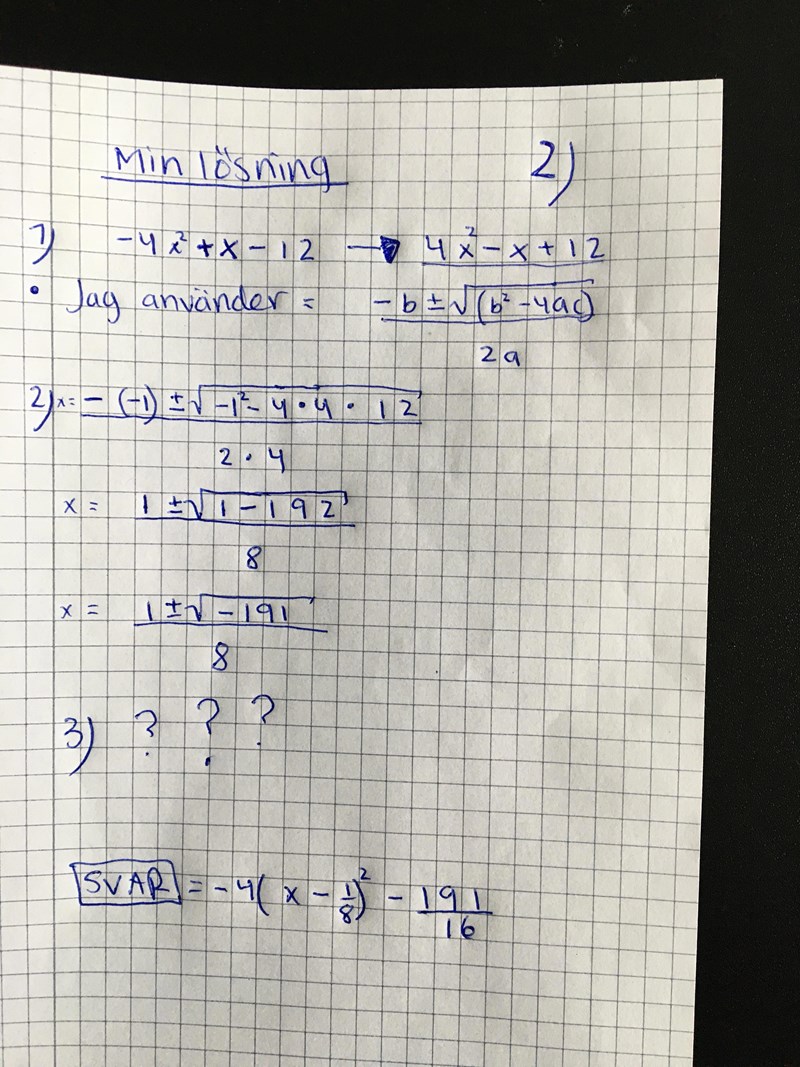 Min lösning 2)
1) -4x²+x-12 → 4x²-x+12
• Jag använder = -b±√(b²-4ac)
2a
2) x= -(-1)±√-1²-4•4•12
2•4
x = 1±√1-192
8
x = 1±√-191
8
3) ? ? ?
SVAR = -4(x-1/8)² - 191/16